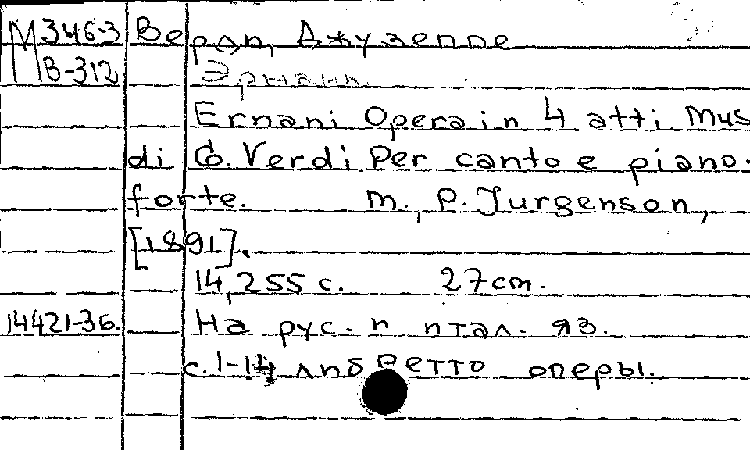 М 346-3 Верди, Джузеппе
В-312 Эрнани.
Ernani Opera in 4 atti Mus
di G. Verdi Per canto e piano-
forte. М., P. Jurgenson,
[1891].
14, 255 с. 27 cm.
14421-36. На рус. и итал. яз.
с. 1-14 либретто оперы.